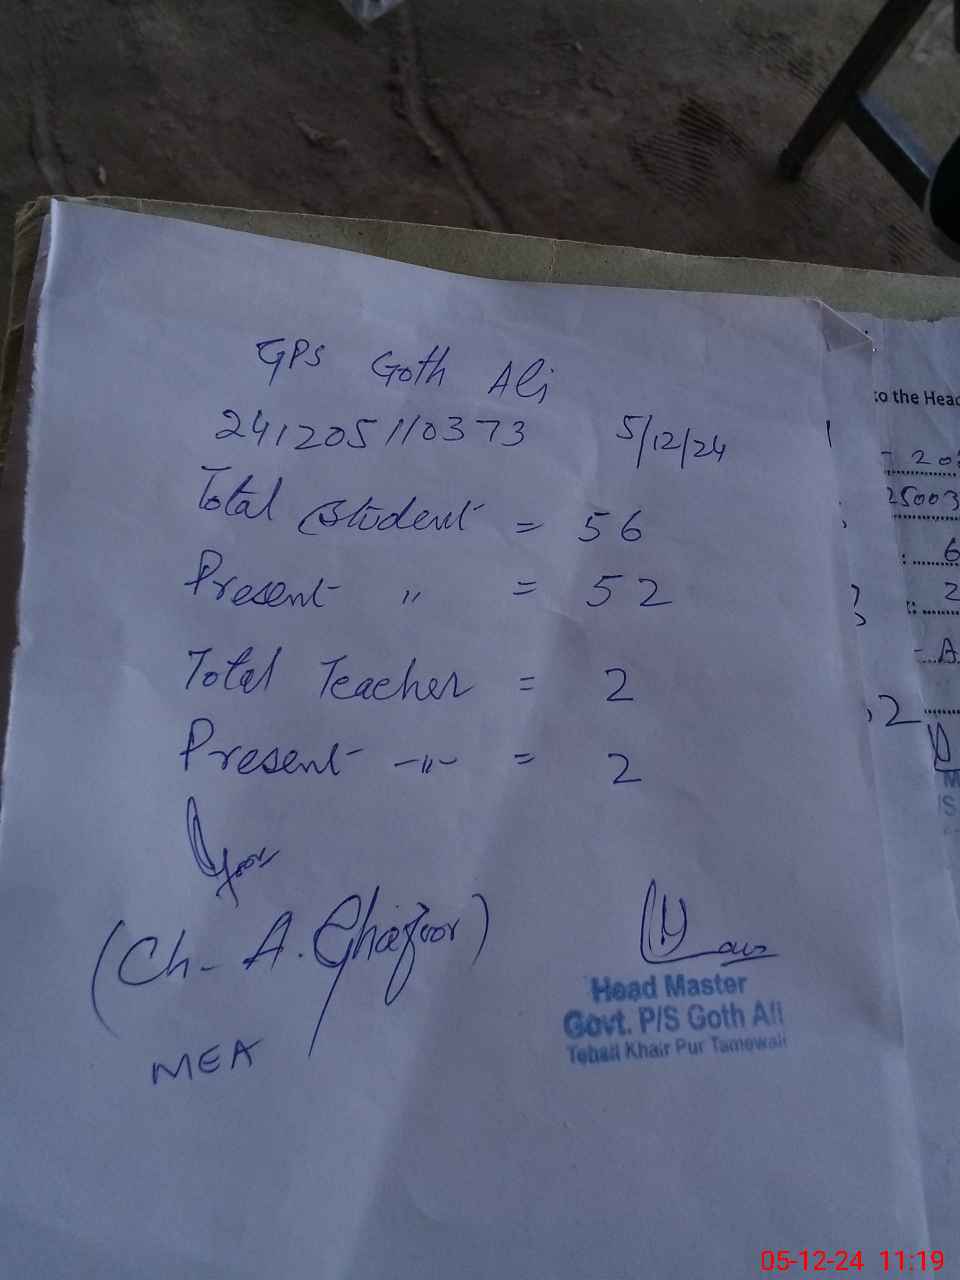 GPS Goth Ali
241205110373 5/12/24
Total Student = 56
Present " = 52
Total Teacher = 2
Present -"- = 2
(Ch- A. Ghafoor)
MEA
Head Master
Govt. P/S Goth Ali
Tehsil Khair Pur Tamewali
to the Head
- 202
25003
: 6
: 2
- A
2
05-12-24 11:19